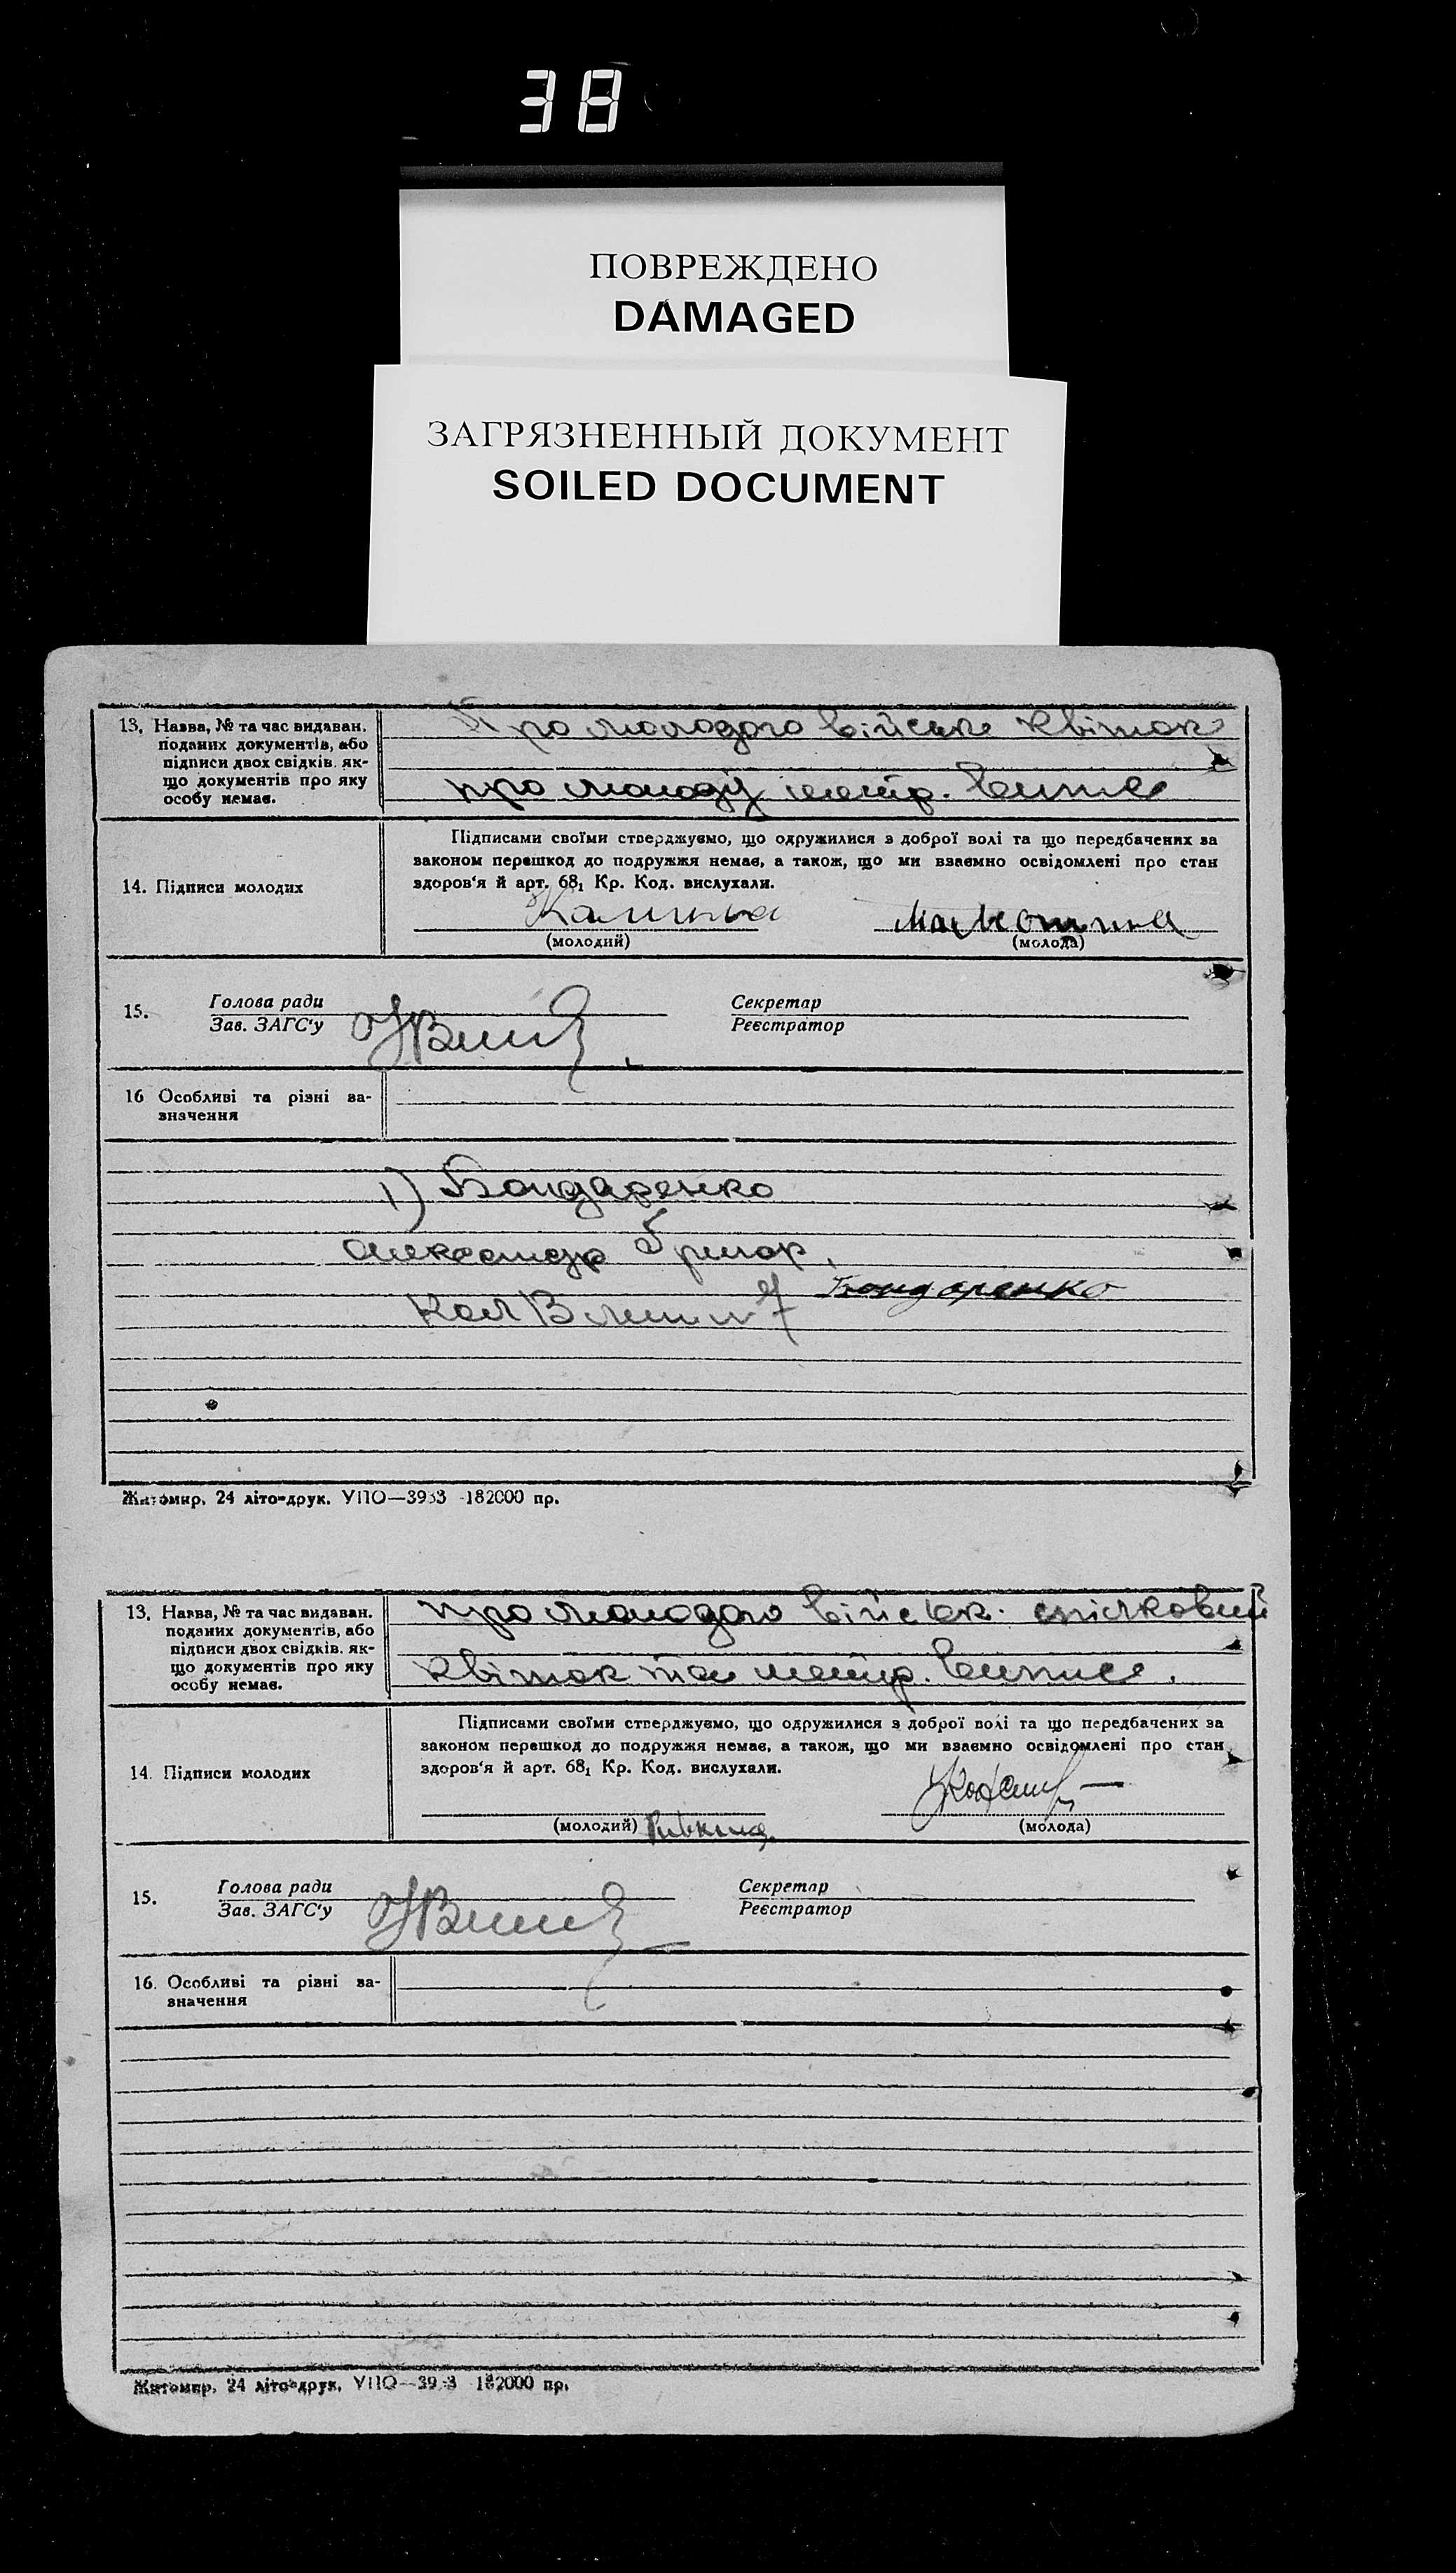 38
ПОВРЕЖДЕНО
DAMAGED
ЗАГРЯЗНЕННЫЙ ДОКУМЕНТ
SOILED DOCUMENT
13. Назва, № та час видаван.
поданих документів, або
підписи двох свідків. як-
що документів про яку
особу немає.
Про молодого військ квіток
про молоду метр. виписа
14. Підписи молодих
Підписами своїми стверджуємо, що одружилися з доброї волі та що передбачених за
законом перешкод до подружжя немає, а також, що ми взаємно освідомлені про стан
здоров'я й арт. 68₁ Кр. Код. вислухали.
(молодий) (молода)
15. Голова ради Секретар
Зав. ЗАГС'у Реєстратор
16 Особливі та різні за-
значення
1) Бондаренко
Олександр Григор.
Бондаренко
Житомир, 24 літо-друк. УПО—3933 -182000 пр.
13. Назва, № та час видаван.
поданих документів, або
підписи двох свідків. як-
що документів про яку
особу немає.
про молодого військ. спілковий
квіток та метр. виписа.
14. Підписи молодих
Підписами своїми стверджуємо, що одружилися з доброї волі та що передбачених за
законом перешкод до подружжя немає, а також, що ми взаємно освідомлені про стан
здоров'я й арт. 68₁ Кр. Код. вислухали.
(молодий) (молода)
15. Голова ради Секретар
Зав. ЗАГС'у Реєстратор
16. Особливі та різні за-
значення
Житомир, 24 літо-друк. УПО 182000 пр.